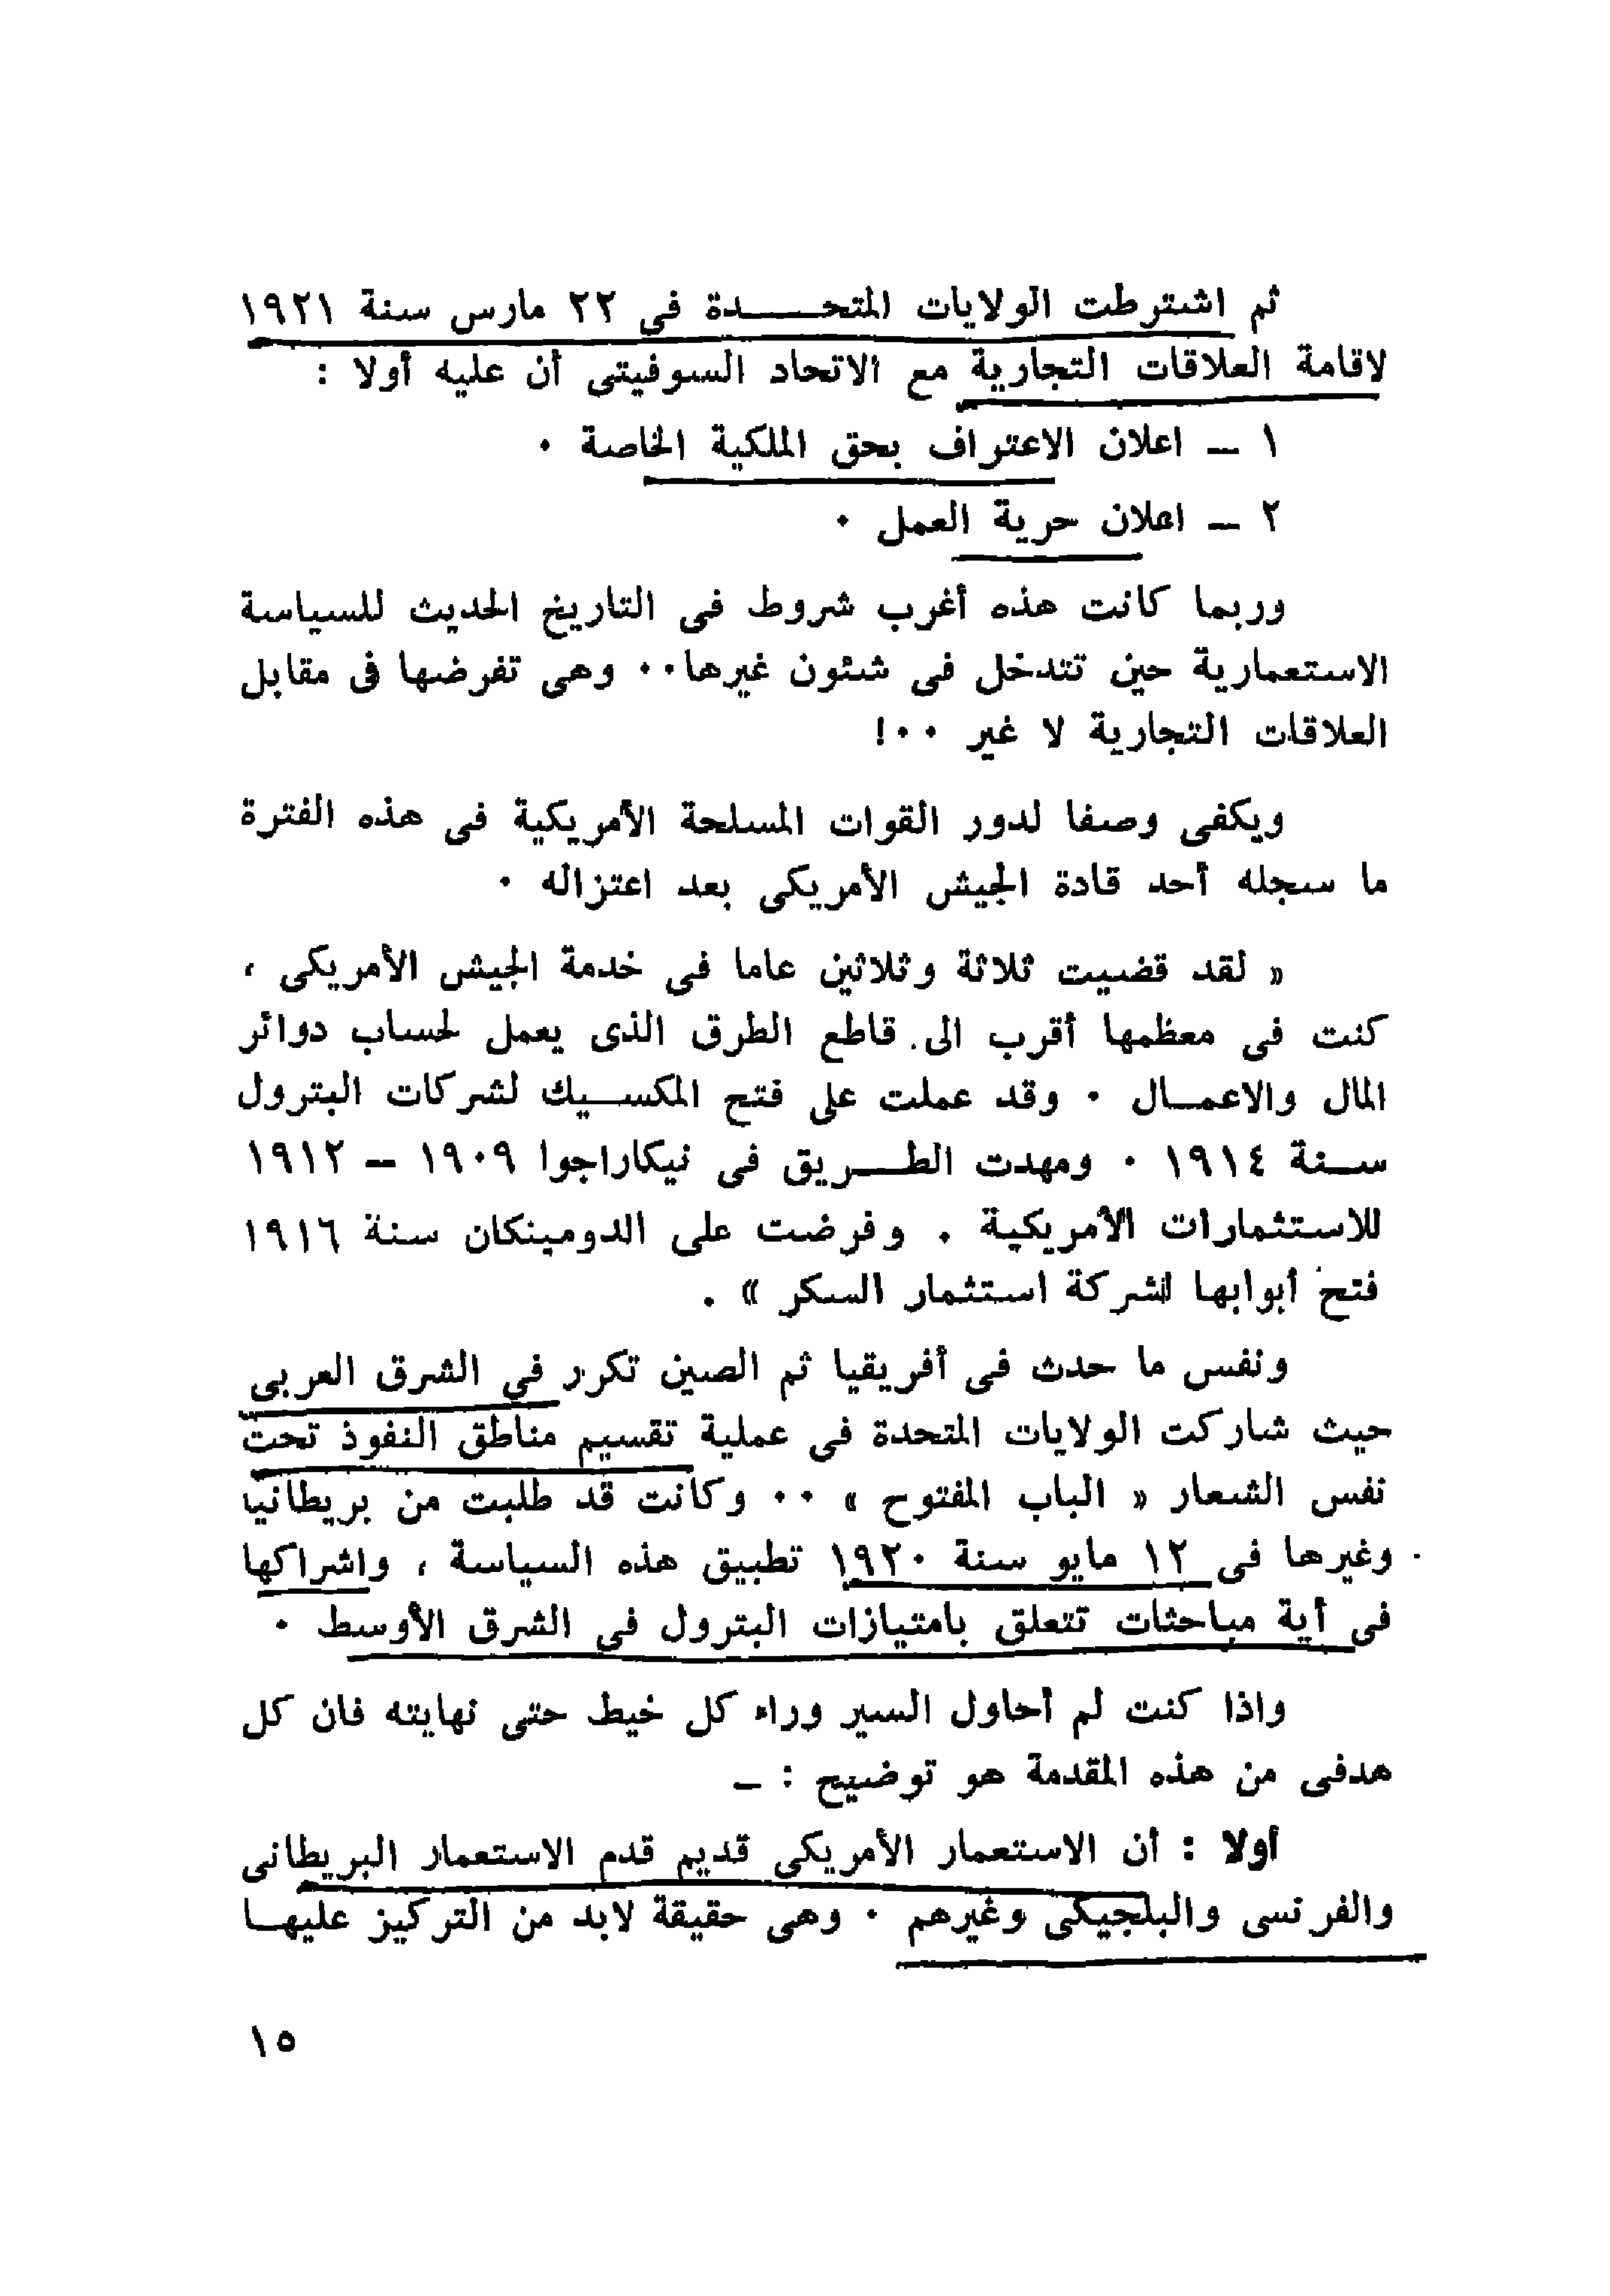 ثم اشترطت الولايات المتحـــدة فى ٢٢ مارس سنة ١٩٢١
لاقامة العلاقات التجارية مع الاتحاد السوفيتى أن عليه أولا :
١ ــ اعلان الاعتراف بحق الملكية الخاصة ٠
٢ ــ اعلان حرية العمل ٠
وربما كانت هذه أغرب شروط فى التاريخ الحديث للسياسة
الاستعمارية حين تتدخل فى شئون غيرها٠٠ وهى تفرضها فى مقابل
العلاقات التجارية لا غير ٠٠!
ويكفى وصفا لدور القوات المسلحة الأمريكية فى هذه الفترة
ما سجله أحد قادة الجيش الأمريكى بعد اعتزاله ٠
« لقد قضيت ثلاثة وثلاثين عاما فى خدمة الجيش الأمريكى ،
كنت فى معظمها أقرب الى قاطع الطرق الذى يعمل لحساب دوائر
المال والاعمــال ٠ وقد عملت على فتح المكســيك لشركات البترول
ســنة ١٩١٤ ٠ ومهدت الطـــريق فى نيكاراجوا ١٩٠٩ ــ ١٩١٢
للاستثمارات الأمريكية . وفرضت على الدومينكان سنة ١٩١٦
فتح أبوابها لشركة استثمار السكر » .
ونفس ما حدث فى أفريقيا ثم الصين تكرر فى الشرق العربى
حيث شاركت الولايات المتحدة فى عملية تقسيم مناطق النفوذ تحت
نفس الشعار « الباب المفتوح » ٠٠ وكانت قد طلبت من بريطانيا
وغيرها فى ١٢ مايو سنة ١٩٢٠ تطبيق هذه السياسة ، واشراكها
فى أية مباحثات تتعلق بامتيازات البترول فى الشرق الأوسط ٠
واذا كنت لم أحاول السير وراء كل خيط حتى نهايته فان كل
هدفى من هذه المقدمة هو توضيح : ــ
أولا : أن الاستعمار الأمريكى قديم قدم الاستعمار البريطانى
والفرنسى والبلجيكى وغيرهم ٠ وهى حقيقة لابد من التركيز عليهــا
١٥